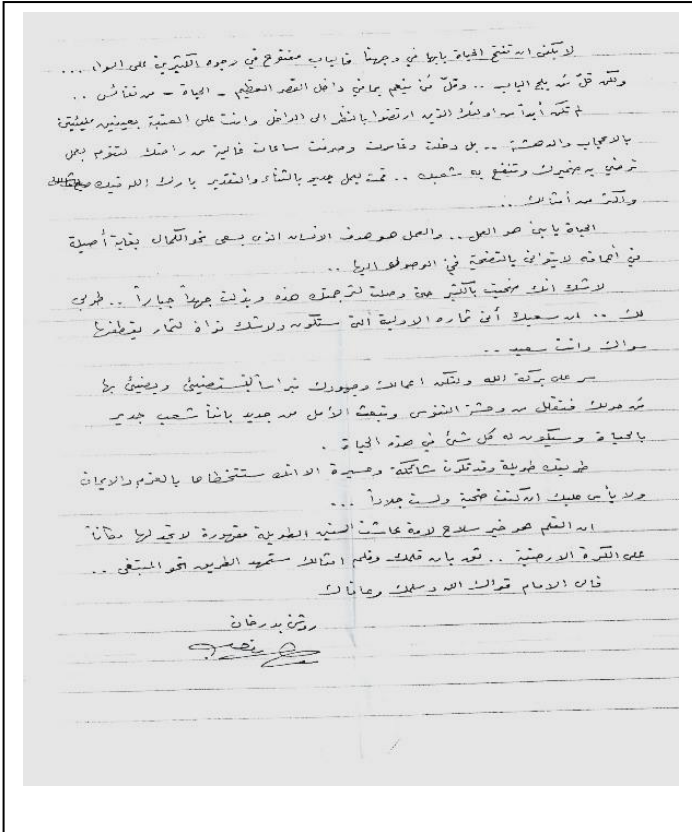 لا يكفي ان تفتح الحياة بابها في وجهنا فالباب مفتوح في وجوه الكثيرين على السواء ...
ولكن قلّ مَن يلج الباب .. وقلّ مَن ينعم بما في داخل القصر العظيم - الحياة - من نفائس ..
لم تكن أبداً من اولئك الذين ارتضوا بالنظر الى الداخل وانت على العتبة بعينين مليئتين
بالاعجاب والدهشة .. بل دخلت وغامرت وصرفت ساعات غالية من راحتك لتقوم بعمل
ترضي به ضميرك وتنفع به شعبك .. قمت بعمل جدير بالثناء والتقدير بارك الله فيك
واكثر من أمثالك ..
الحياة يا بني هو العمل .. والعمل هو هدف الانسان الذي يسعى نحو الكمال بغاية أصيلة
في أعماقه لا يتوانى بالتضحية في الوصول اليها ..
لاشك انك ضحيت بالكثير حتى وصلت لترجمتك هذه وبذلت جهداً جباراً .. طوبى
لك .. ان سعيك أتى ثماره الاولية التي ستكون ولاشك نواة لثمار يقطفها
سواك وانت سعيد ..
سر على بركة الله ولتكن اعمالك وجهودك نبراساً لتستضيئ ويضيئ بها
مَن حولك فتقلل من وحشة النفوس وتبعث الأمل من جديد باننا شعب جدير
بالحياة وسيكون له كل شئ في هذه الحياة .
طريقك طويلة وقد تكون شائكة وعسيرة الا انك ستتخطاها بالعزم والايمان
ولا بأس عليك ان كنت ضحية ولست جلاداً ...
ان القلم هو خير سلاح لامة عاشت السنين الطويلة مقهورة لا تجد لها مكاناً
على الكرة الارضية .. ثق بان قلمك وقلم امثالك ستمهد الطريق نحو المبتغى ..
فالى الامام قواك الله وسلمك وعافاك
روشن بدرخان